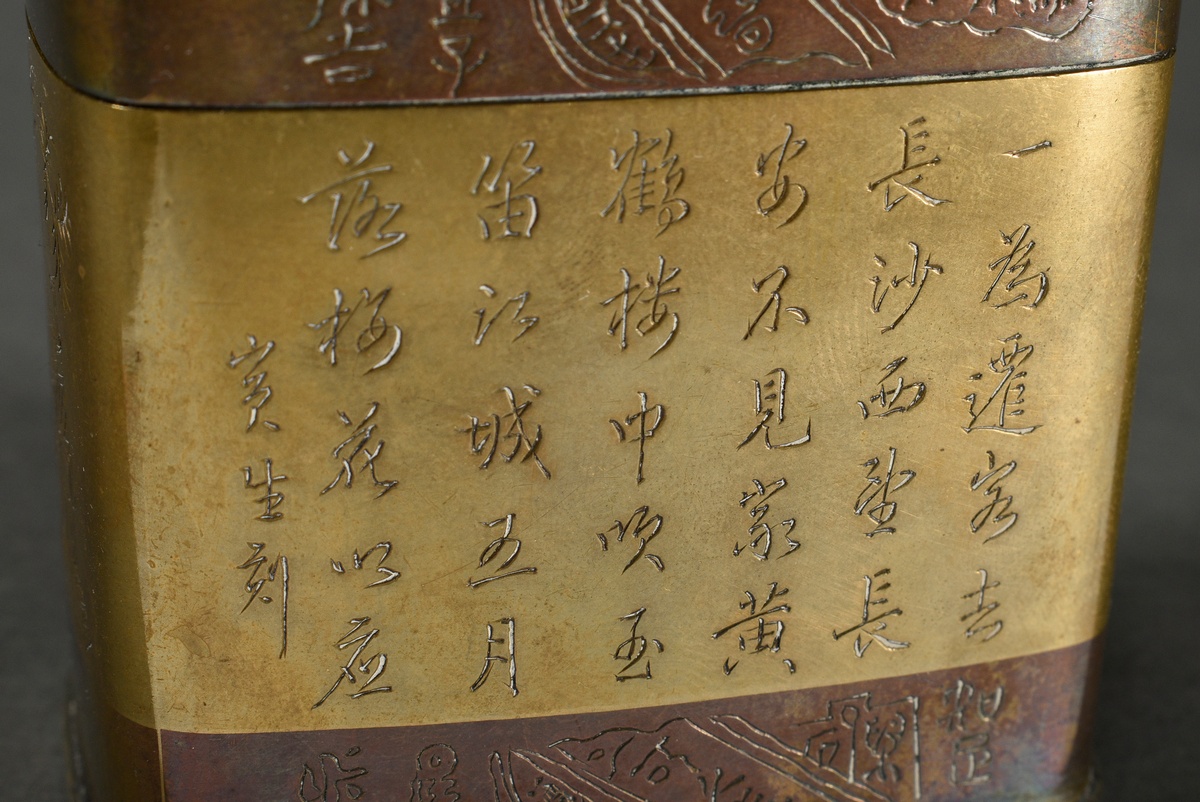 一為遷客去
長沙西望長
安不見家黃
鶴楼中吹玉
笛江城五月
落梅花以应
寅生刻